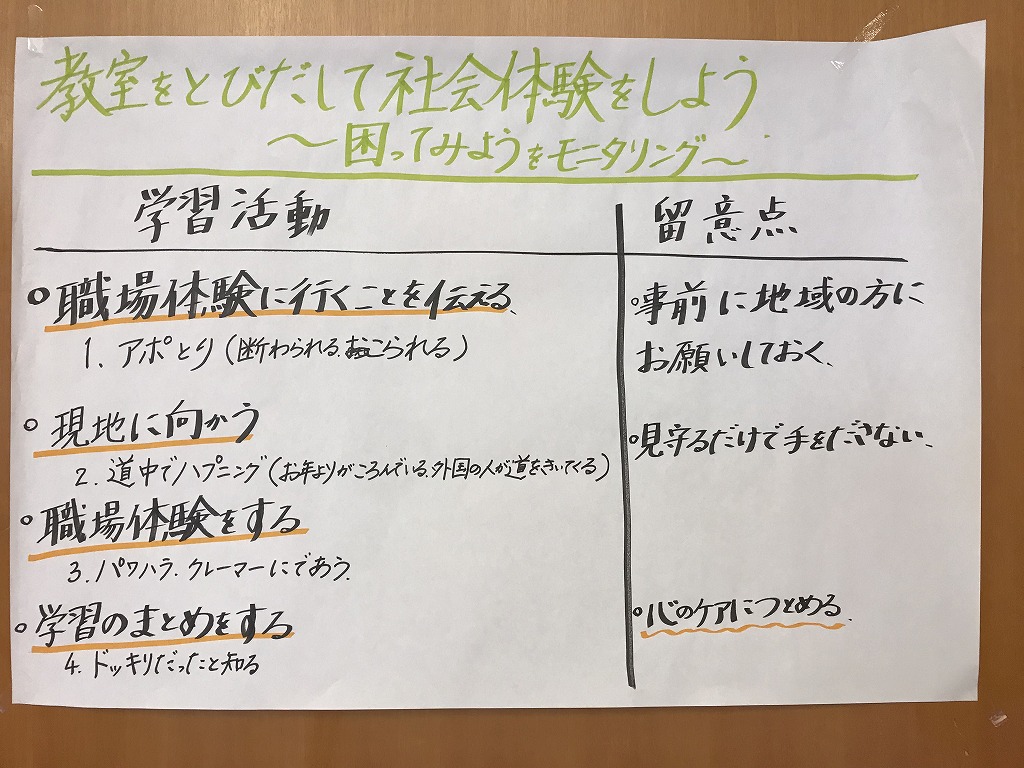 教室をとびだして社会体験をしよう
〜困ってみようをモニタリング〜
学習活動
留意点
○職場体験に行くことを伝える。
1. アポとり(断わられる、おこられる)
○事前に地域の方に
お願いしておく。
○現地に向かう
2. 道中でハプニング(お年よりがころんでいる、外国の人が道をきいてくる)
○見守るだけで手をださない。
○職場体験をする
3. パワハラ、クレーマーにであう。
○学習のまとめをする
4. ドッキリだったと知る
○心のケアにつとめる。